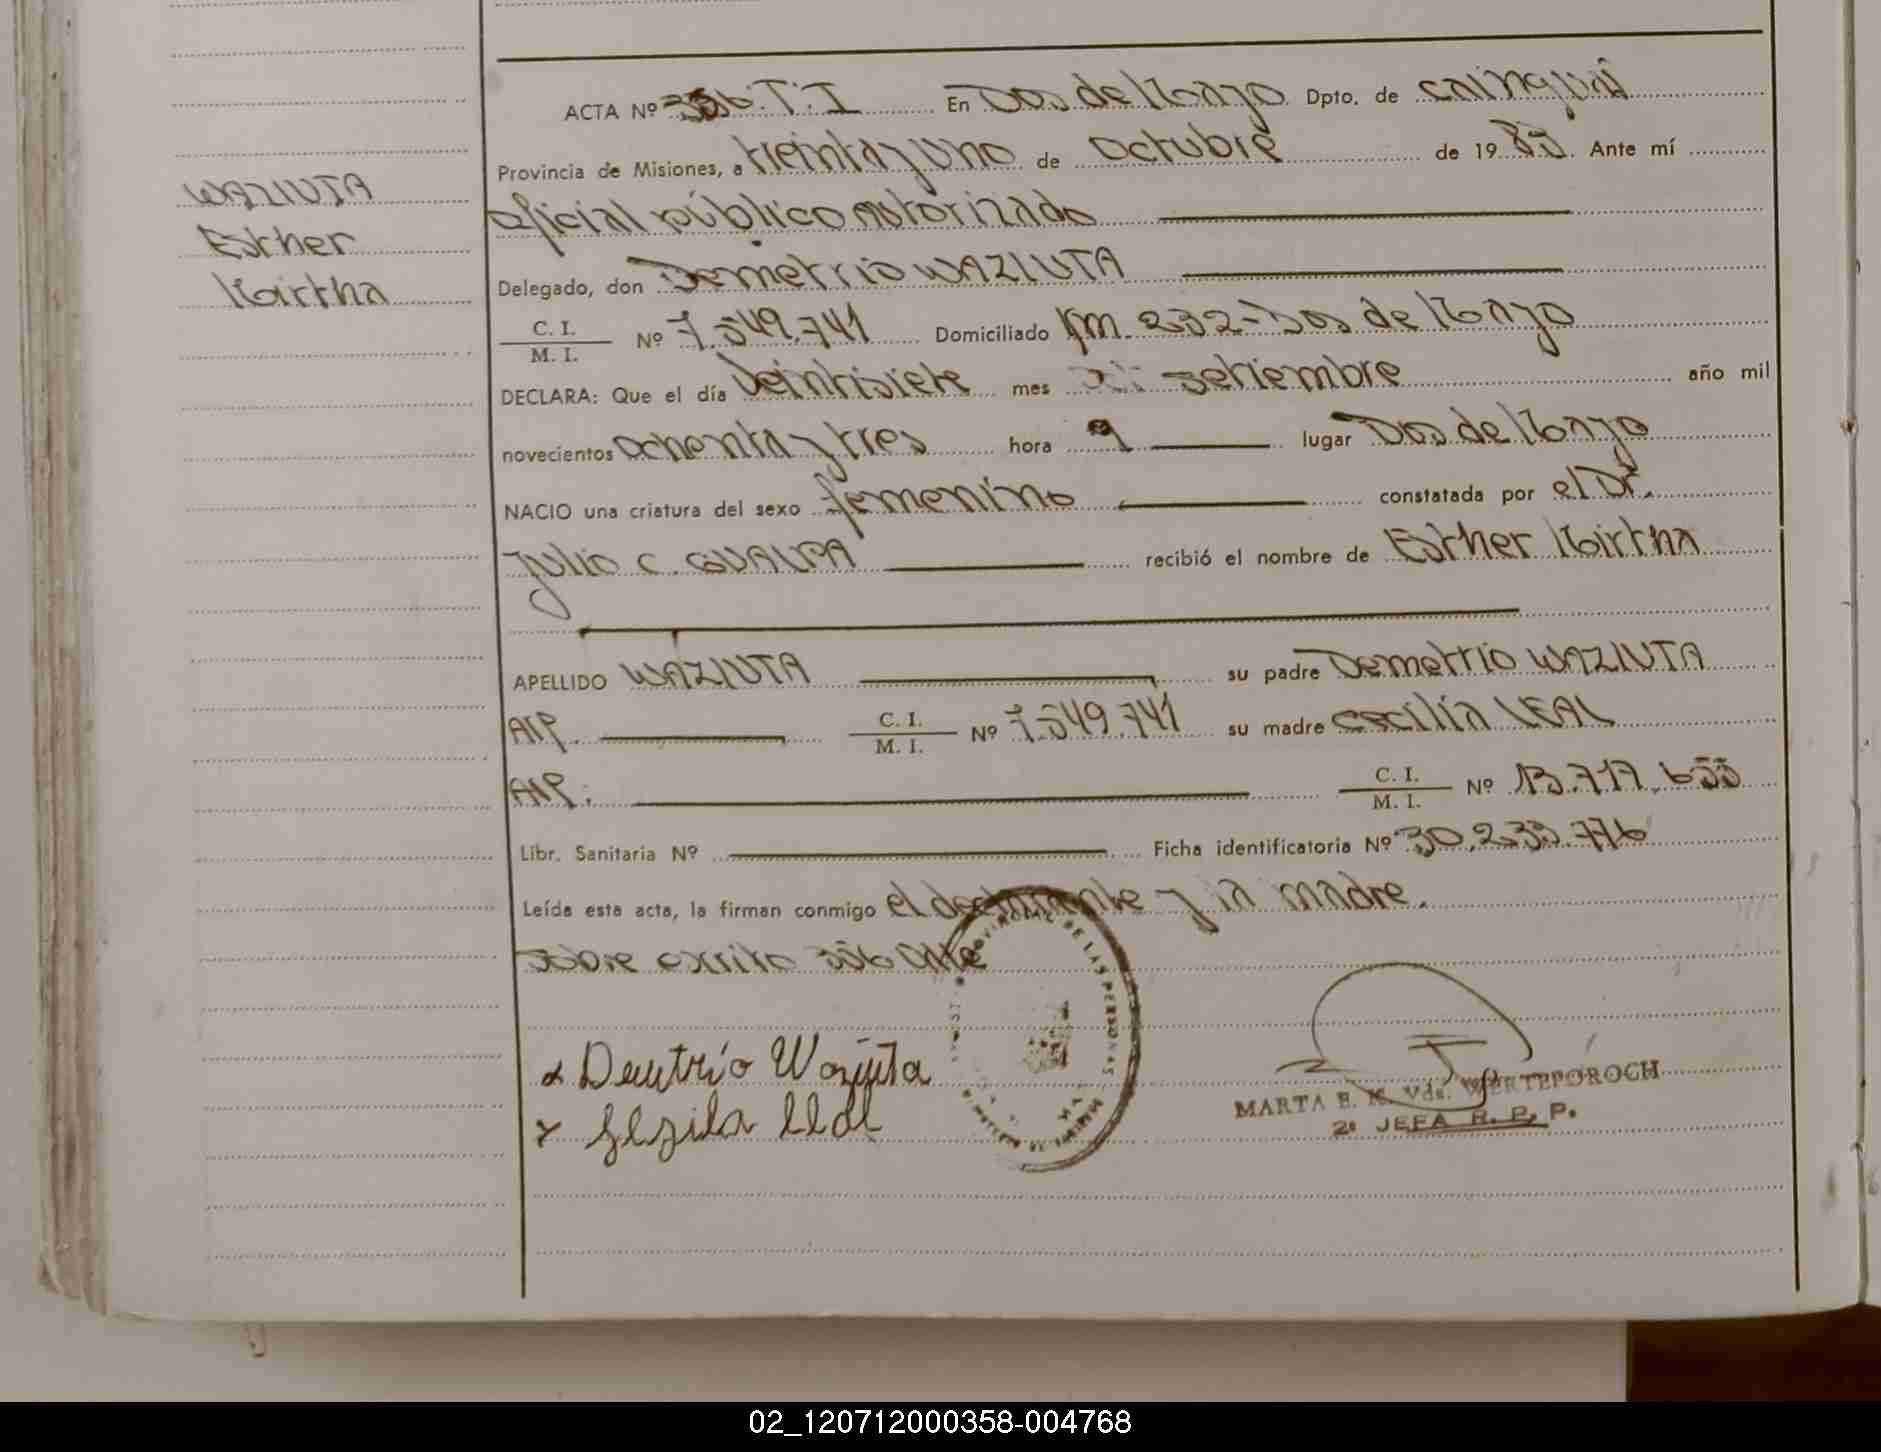 WAZIUTA
Esther
Mirtha
ACTA Nº 356.T.I En Dos de Mayo Dpto. de Cainguás
Provincia de Misiones, a treinta y uno de Octubre de 19 83. Ante mí
Oficial público autorizado
Delegado, don Demetrio WAZIUTA
C. I.
M. I. Nº 7.549.741 Domiciliado Km. 232-Dos de Mayo
DECLARA: Que el día Veintisiete mes setiembre año mil
novecientos ochenta y tres hora 9 lugar Dos de Mayo
NACIO una criatura del sexo femenino constatada por el Dr.
Julio C. GUALPA recibió el nombre de Esther Mirtha
APELLIDO WAZIUTA su padre Demetrio WAZIUTA
Arg. C. I.
M. I. Nº 7.549.741 su madre Cecilia LEAL
Arg. C. I.
M. I. Nº 13.717.655
Libr. Sanitaria Nº Ficha identificatoria Nº 30.233.776
Leída esta acta, la firman conmigo el declarante y la madre.
Sobre escrito 356 Vale
x Demetrio Waziuta
x Leal
DE LAS PERSONAS
MARTA E. K. Vda. WERTEPOROCH
2º JEFA R. P. P.
02_120712000358-004768